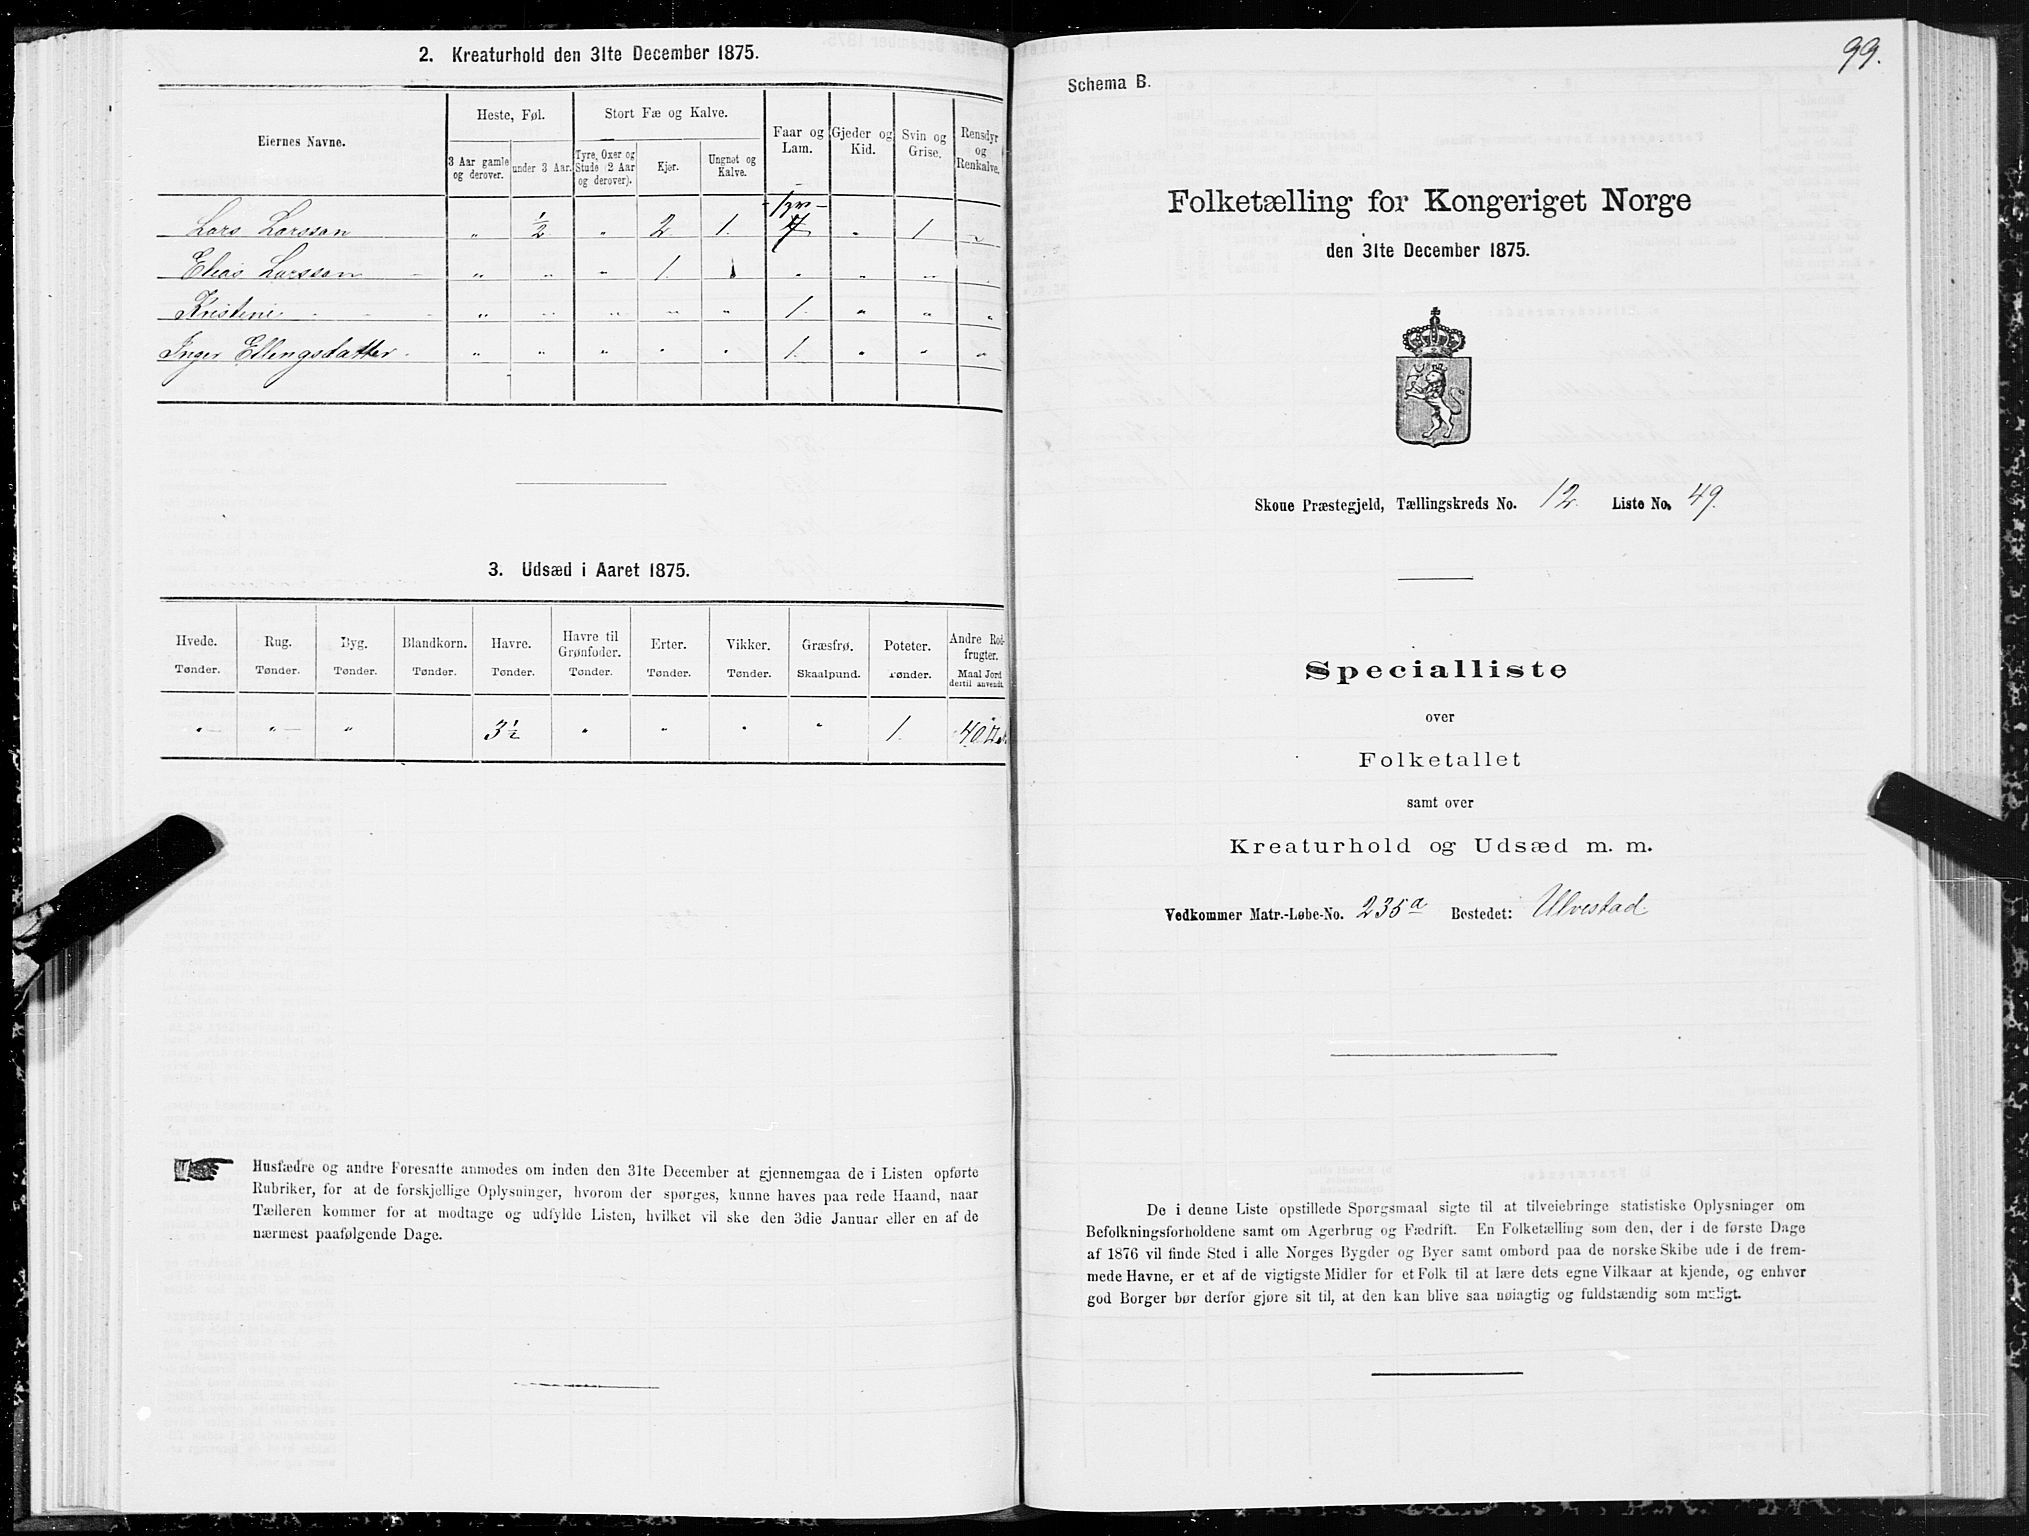 2. Kreaturhold den 31te December 1875.
Eiernes Navne.
Heste, Føl.
Stort Fæ og Kalve.
Faar og Lam.
Gjeder og Kid.
Svin og Grise.
Rensdyr og Renkalve.
3 Aar gamle og derover.
under 3 Aar.
Tyre, Oxer og Stude (2 Aar og derover).
Kjør.
Ungnøt og Kalve.
Lars Larsson " ½ " 2 1. 7 " 1 "
Elias Larsson " " " 1. " " "
Kristine " " " " " 1. " " "
Inger Ellingsdatter. " " " " " 1. " " "
3. Udsæd i Aaret 1875.
Hvede. Tønder.
Rug. Tønder.
Byg. Tønder.
Blandkorn. Tønder.
Havre. Tønder.
Havre til Grønfoder. Tønder.
Erter. Tønder.
Vikker. Tønder.
Græsfrø. Skaalpund.
Poteter. Tønder.
Andre Rodfrugter. Maal Jord dertil anvendt.
" " " 3½ " " " " 1. 40
Husfædre og andre Foresatte anmodes om inden den 31te December at gjennemgaa de i Listen opførte
Rubriker, for at de forskjellige Oplysninger, hvorom der spørges, kunne haves paa rede Haand, naar
Tælleren kommer for at modtage og udfylde Listen, hvilket vil ske den 3die Januar eller en af de
nærmest paafølgende Dage.
99.
Schema B.
Folketælling for Kongeriget Norge
den 31te December 1875.
Skoue Præstegjeld, Tællingskreds No. 12. Liste No. 49.
Specialliste
over
Folketallet
samt over
Kreaturhold og Udsæd m. m.
Vedkommer Matr.-Løbe-No. 235a Bostedet: Ulvestad
De i denne Liste opstillede Spørgsmaal sigte til at tilveiebringe statistiske Oplysninger om
Befolkningsforholdene samt om Agerbrug og Fædrift. En Folketælling som den, der i de første Dage
af 1876 vil finde Sted i alle Norges Bygder og Byer samt ombord paa de norske Skibe ude i de frem-
mede Havne, er et af de vigtigste Midler for et Folk til at lære dets egne Vilkaar at kjende, og enhver
god Borger bør derfor gjøre sit til, at den kan blive saa nøiagtig og fuldstændig som muligt.